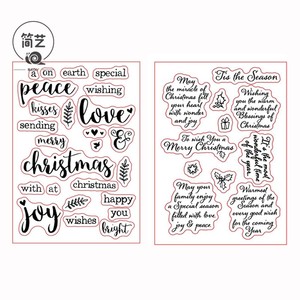 简艺
a on earth special
peace wishing
kisses love
sending &
merry
christmas
with at christmas
joy happy
wishes you
bright
'Tis the Season
May
the miracle of
Christmas fill
your heart
with wonder
and joy
Wishing
you the warm
and wonderful
Blessings of
Christmas
To wish You a
Merry Christmas
It's the most
wonderful
time of
the year
May your
family enjoy
a Special season
filled with love,
joy & peace
Warmest
greetings of the
Season and
every good wish
for the coming
Year